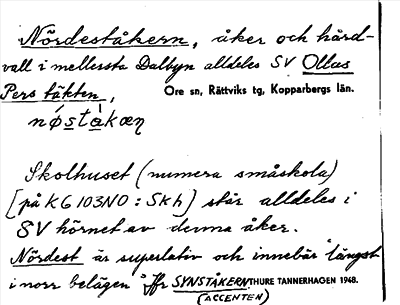 Nördeståkern, åker och hård-
vall i mellersta Dalbyn alldeles SV Ollas
Pers täkten, Ore sn, Rättviks tg, Kopparbergs län.
nǿstàkæn
Skolhuset (numera småskola)
[på KG 103NO: Skh) står alldeles i
SV hörnet av denna åker.
Nördest är superlativ och innebär "längst
i norr belägen" Jfr SYNSTÅKERN THURE TANNERHAGEN 1948.
(ACCENTEN)